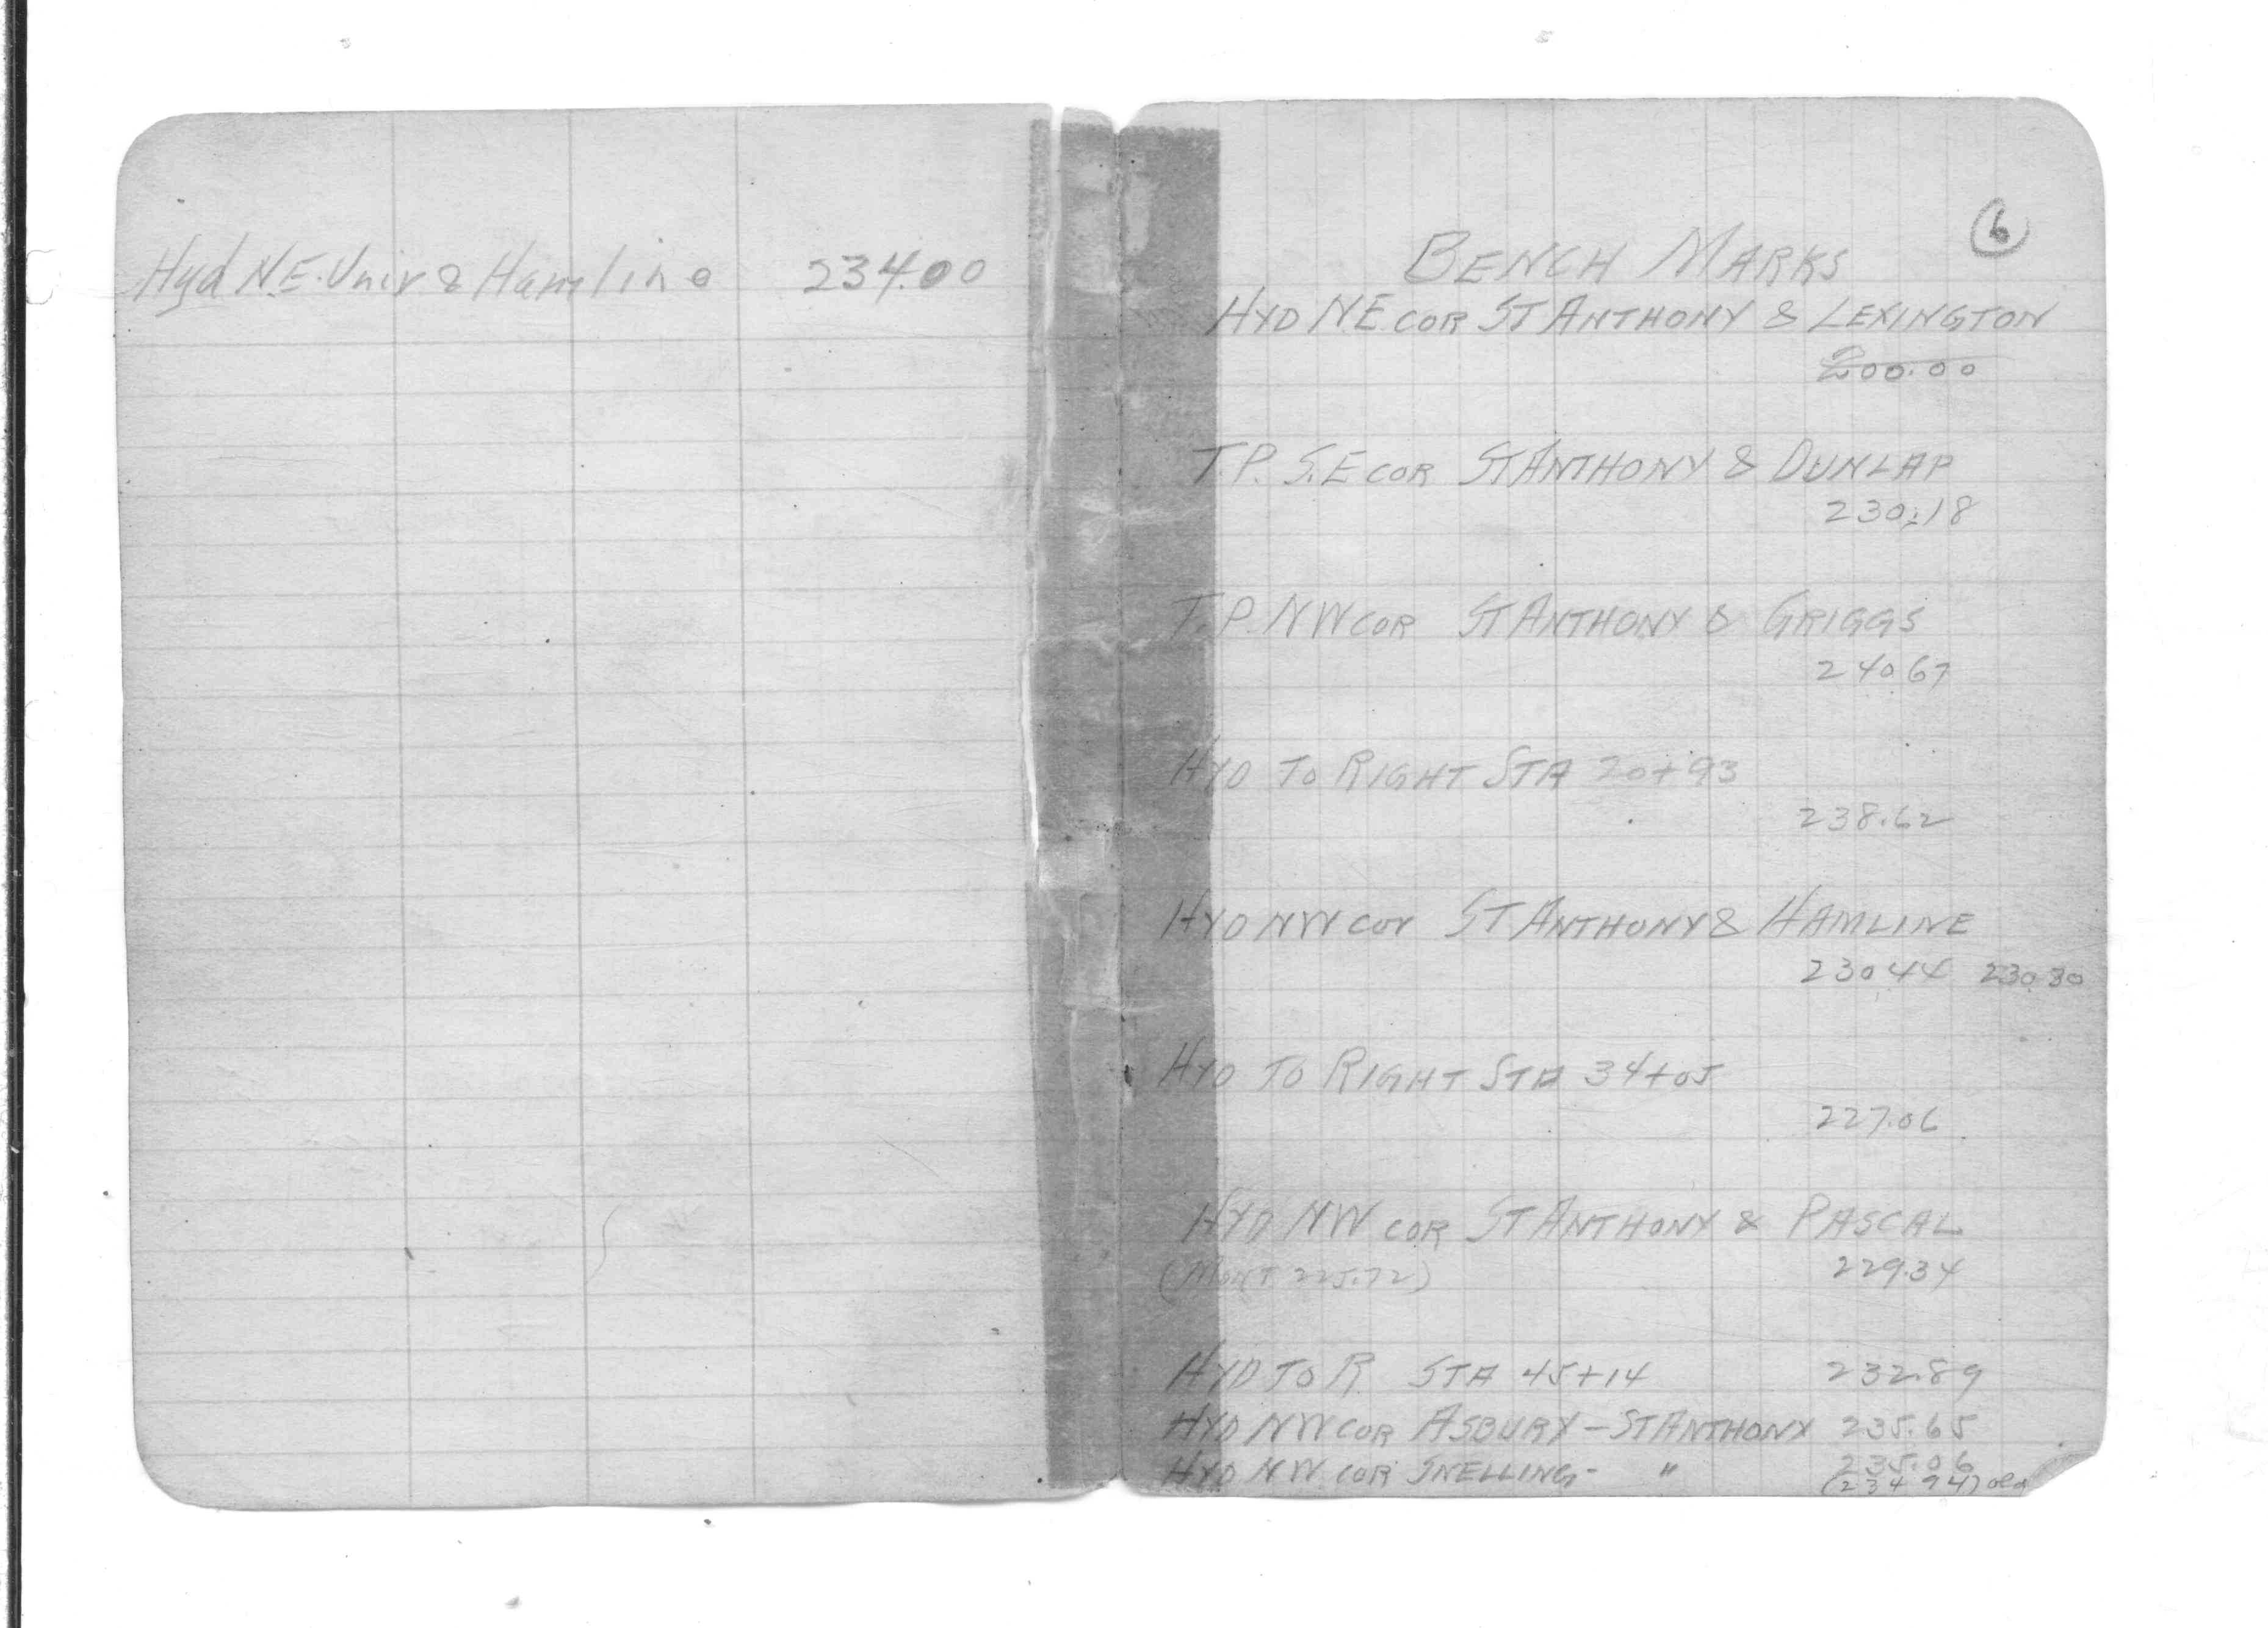 Hyd N.E. Univ. & Hamline 234.00
6
BENCH MARKS
HYD NE COR ST ANTHONY & LEXINGTON
200.00
T.P. S.E COR ST ANTHONY & DUNLAP
230.18
T.P. NW COR ST ANTHONY & GRIGGS
240.67
HYD TO RIGHT STA 20+93
238.62
HYD NW cor ST ANTHONY & HAMLINE
230.44 230.30
HYD TO RIGHT STA 34+05
227.06
HYD NW COR ST ANTHONY & PASCAL
(MONT 225.72) 229.34
HYD TO R STA 45+14 232.89
HYD NW COR ASBURY - ST ANTHONY 235.65
HYD NW COR SNELLING - " 235.06
(234.94) old